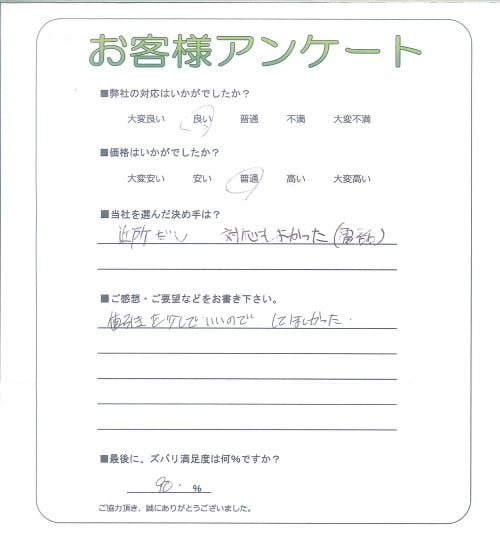 お客様アンケート
■弊社の対応はいかがでしたか？
大変良い 良い 普通 不満 大変不満
■価格はいかがでしたか？
大変安い 安い 普通 高い 大変高い
■当社を選んだ決め手は？
近所だし 対応も よかった（電話）
■ご感想・ご要望などをお書き下さい。
値引きを少しでいいので してほしかった.
■最後に、ズバリ満足度は何％ですか？
90. %
ご協力頂き、誠にありがとうございました。